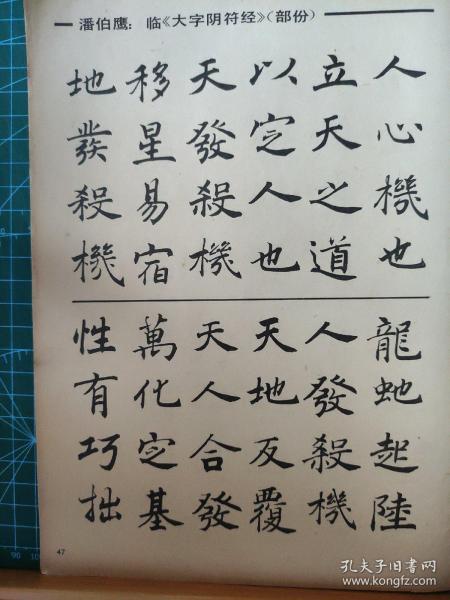 潘伯鹰：临《大字阴符经》（部份）
人心機也
立天之道
以定人也
天發殺機
移星易宿
地發殺機
龍虵起陸
人發殺機
天地反覆
天人合發
萬化定基
性有巧拙
47
90
孔夫子旧书网
www.kongfz.com